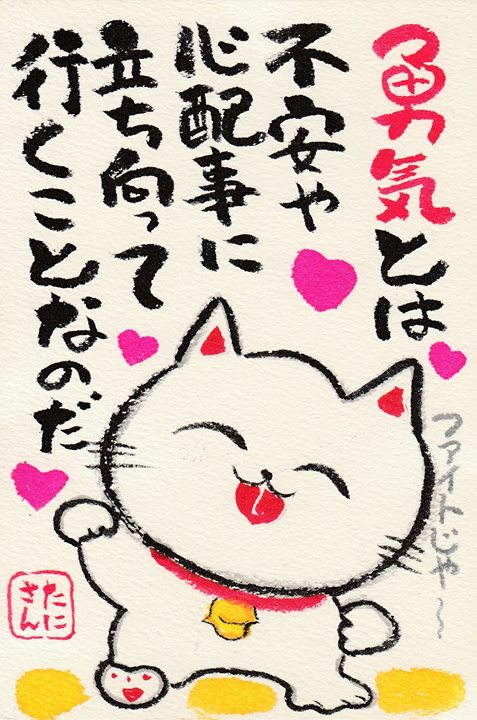 勇気とは
不安や
心配事に
立ち向って
行くことなのだ
ファイトじゃ〜
たに
さん